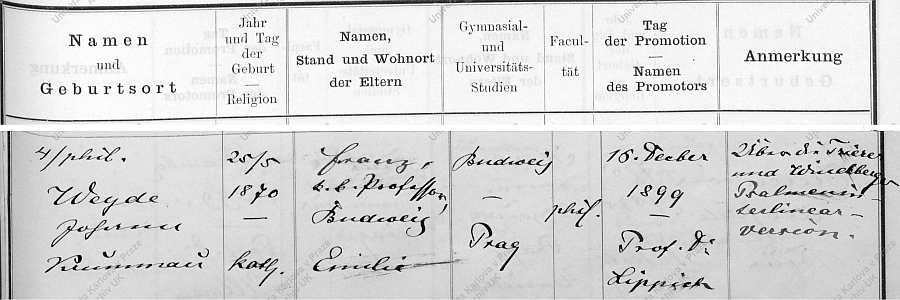 Namen
und
Geburtsort
Jahr
und Tag
der
Geburt
Religion
Namen,
Stand und Wohnort
der Eltern
Gymnasial-
und
Universitäts-
Studien
Facul-
tät
Tag
der Promotion
Namen
des Promotors
Anmerkung
4/phil.
Weyde
Johann
Krummau
25/5
1870
—
kath.
Franz,
k. k. Professor,
Budweis
Emilie
Budweis
—
Prag
phil.
16. Decber
1899
—
Prof. Dr
Lippich
Über die Trierer
und Windberger
Psalmenin-
terlinear-
version.